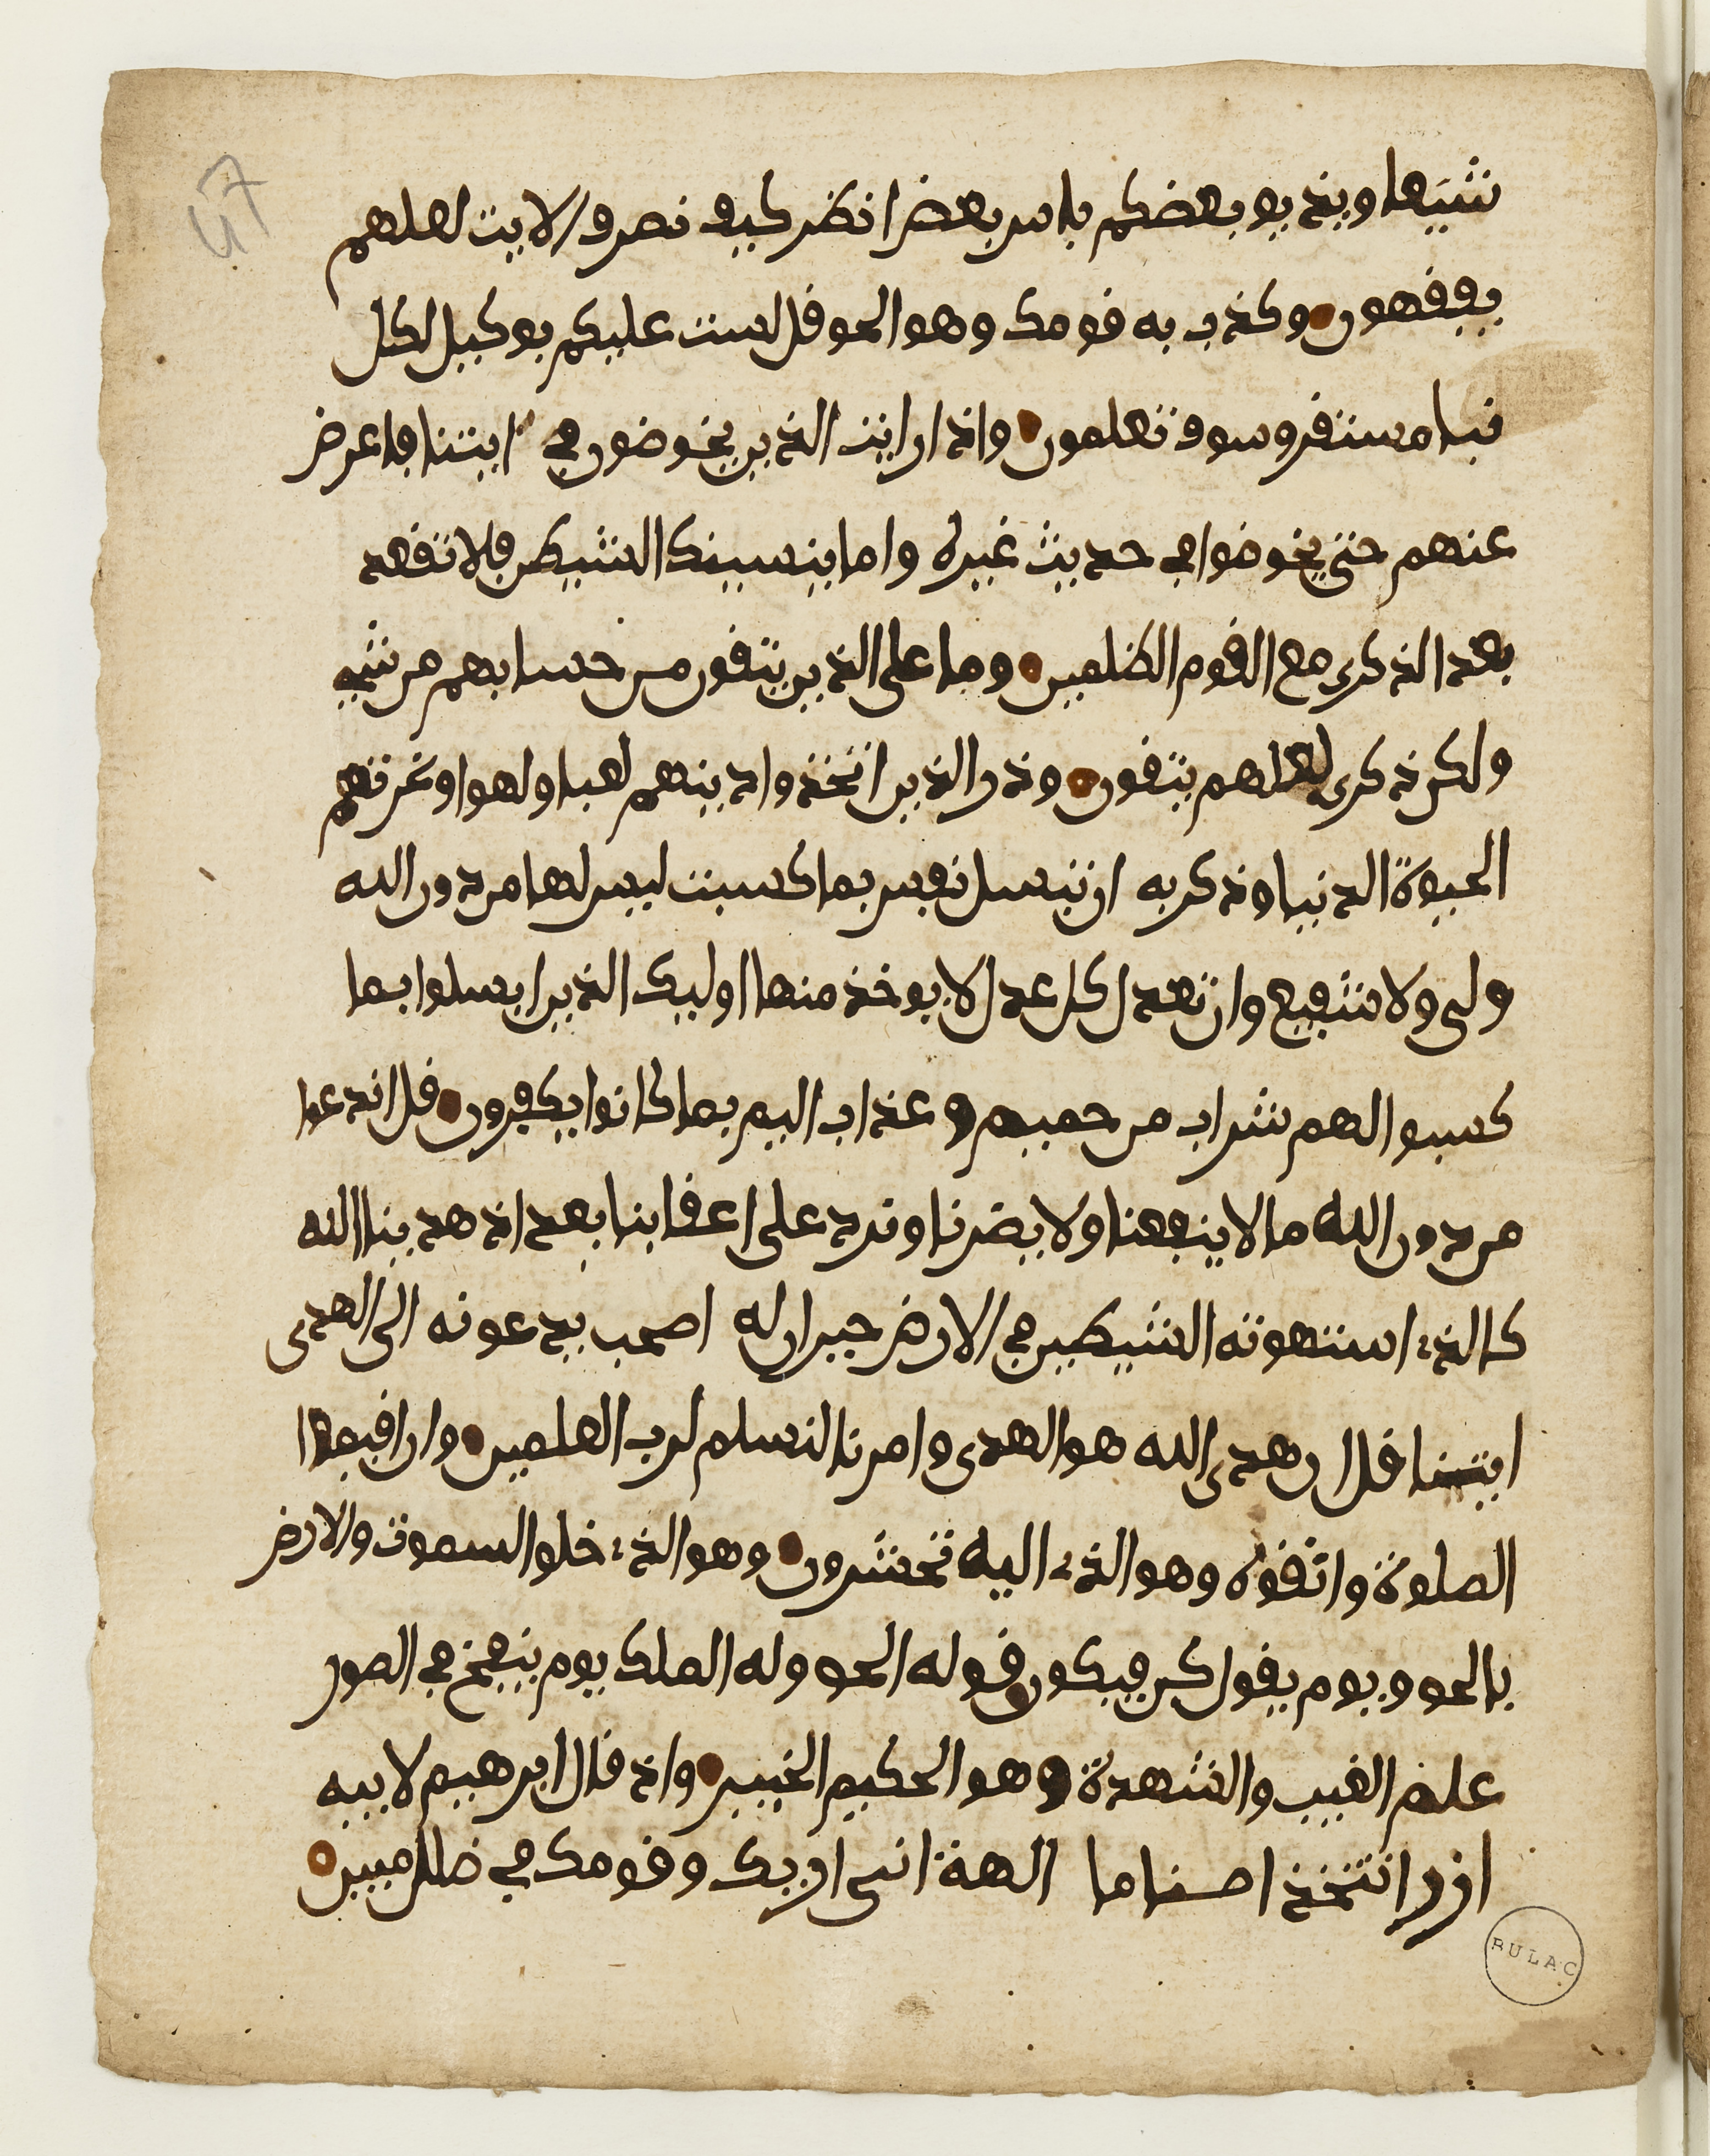 47
شيعا ويذيق بعضكم باس بعض انظر كيف نصرف الايت لعلهم
يفقهون وكذب به قومك وهو الحق قل لست عليكم بوكيل لكل
نبا مستقر وسوف تعلمون واذا رايت الذين يخوضون في ايتنا فاعرض
عنهم حتى يخوضوا في حديث غيره واما ينسينك الشيطن فلا تقعد
بعد الذكرى مع القوم الظلمين وما على الذين يتقون من حسابهم من شيء
ولكن ذكرى لعلهم يتقون وذر الذين اتخذوا دينهم لعبا ولهوا وغرتهم
الحيوة الدنيا وذكر به ان تبسل نفس بما كسبت ليس لها من دون الله
ولي ولا شفيع وان تعدل كل عدل لا يوخذ منها اوليك الذين ابسلوا بما
كسبوا لهم شراب من حميم وعذاب اليم بما كانوا يكفرون قل اندعوا
من دون الله ما لا ينفعنا ولا يضرنا ونرد على اعقابنا بعد اذ هدينا الله
كالذي استهوته الشيطين في الارض حيران له اصحب يدعونه الى الهدى
ايتنا قل ان هدى الله هو الهدى وامرنا لنسلم لرب العلمين وان اقيموا
الصلوة واتقوه وهو الذي اليه تحشرون وهو الذي خلق السموت والارض
بالحق ويوم يقول كن فيكون قوله الحق وله الملك يوم ينفخ في الصور
علم الغيب والشهدة وهو الحكيم الخبير واذ قال ابرهيم لابيه
ازر اتتخذ اصناما الهة اني اريك وقومك في ضلل مبين
BULAC